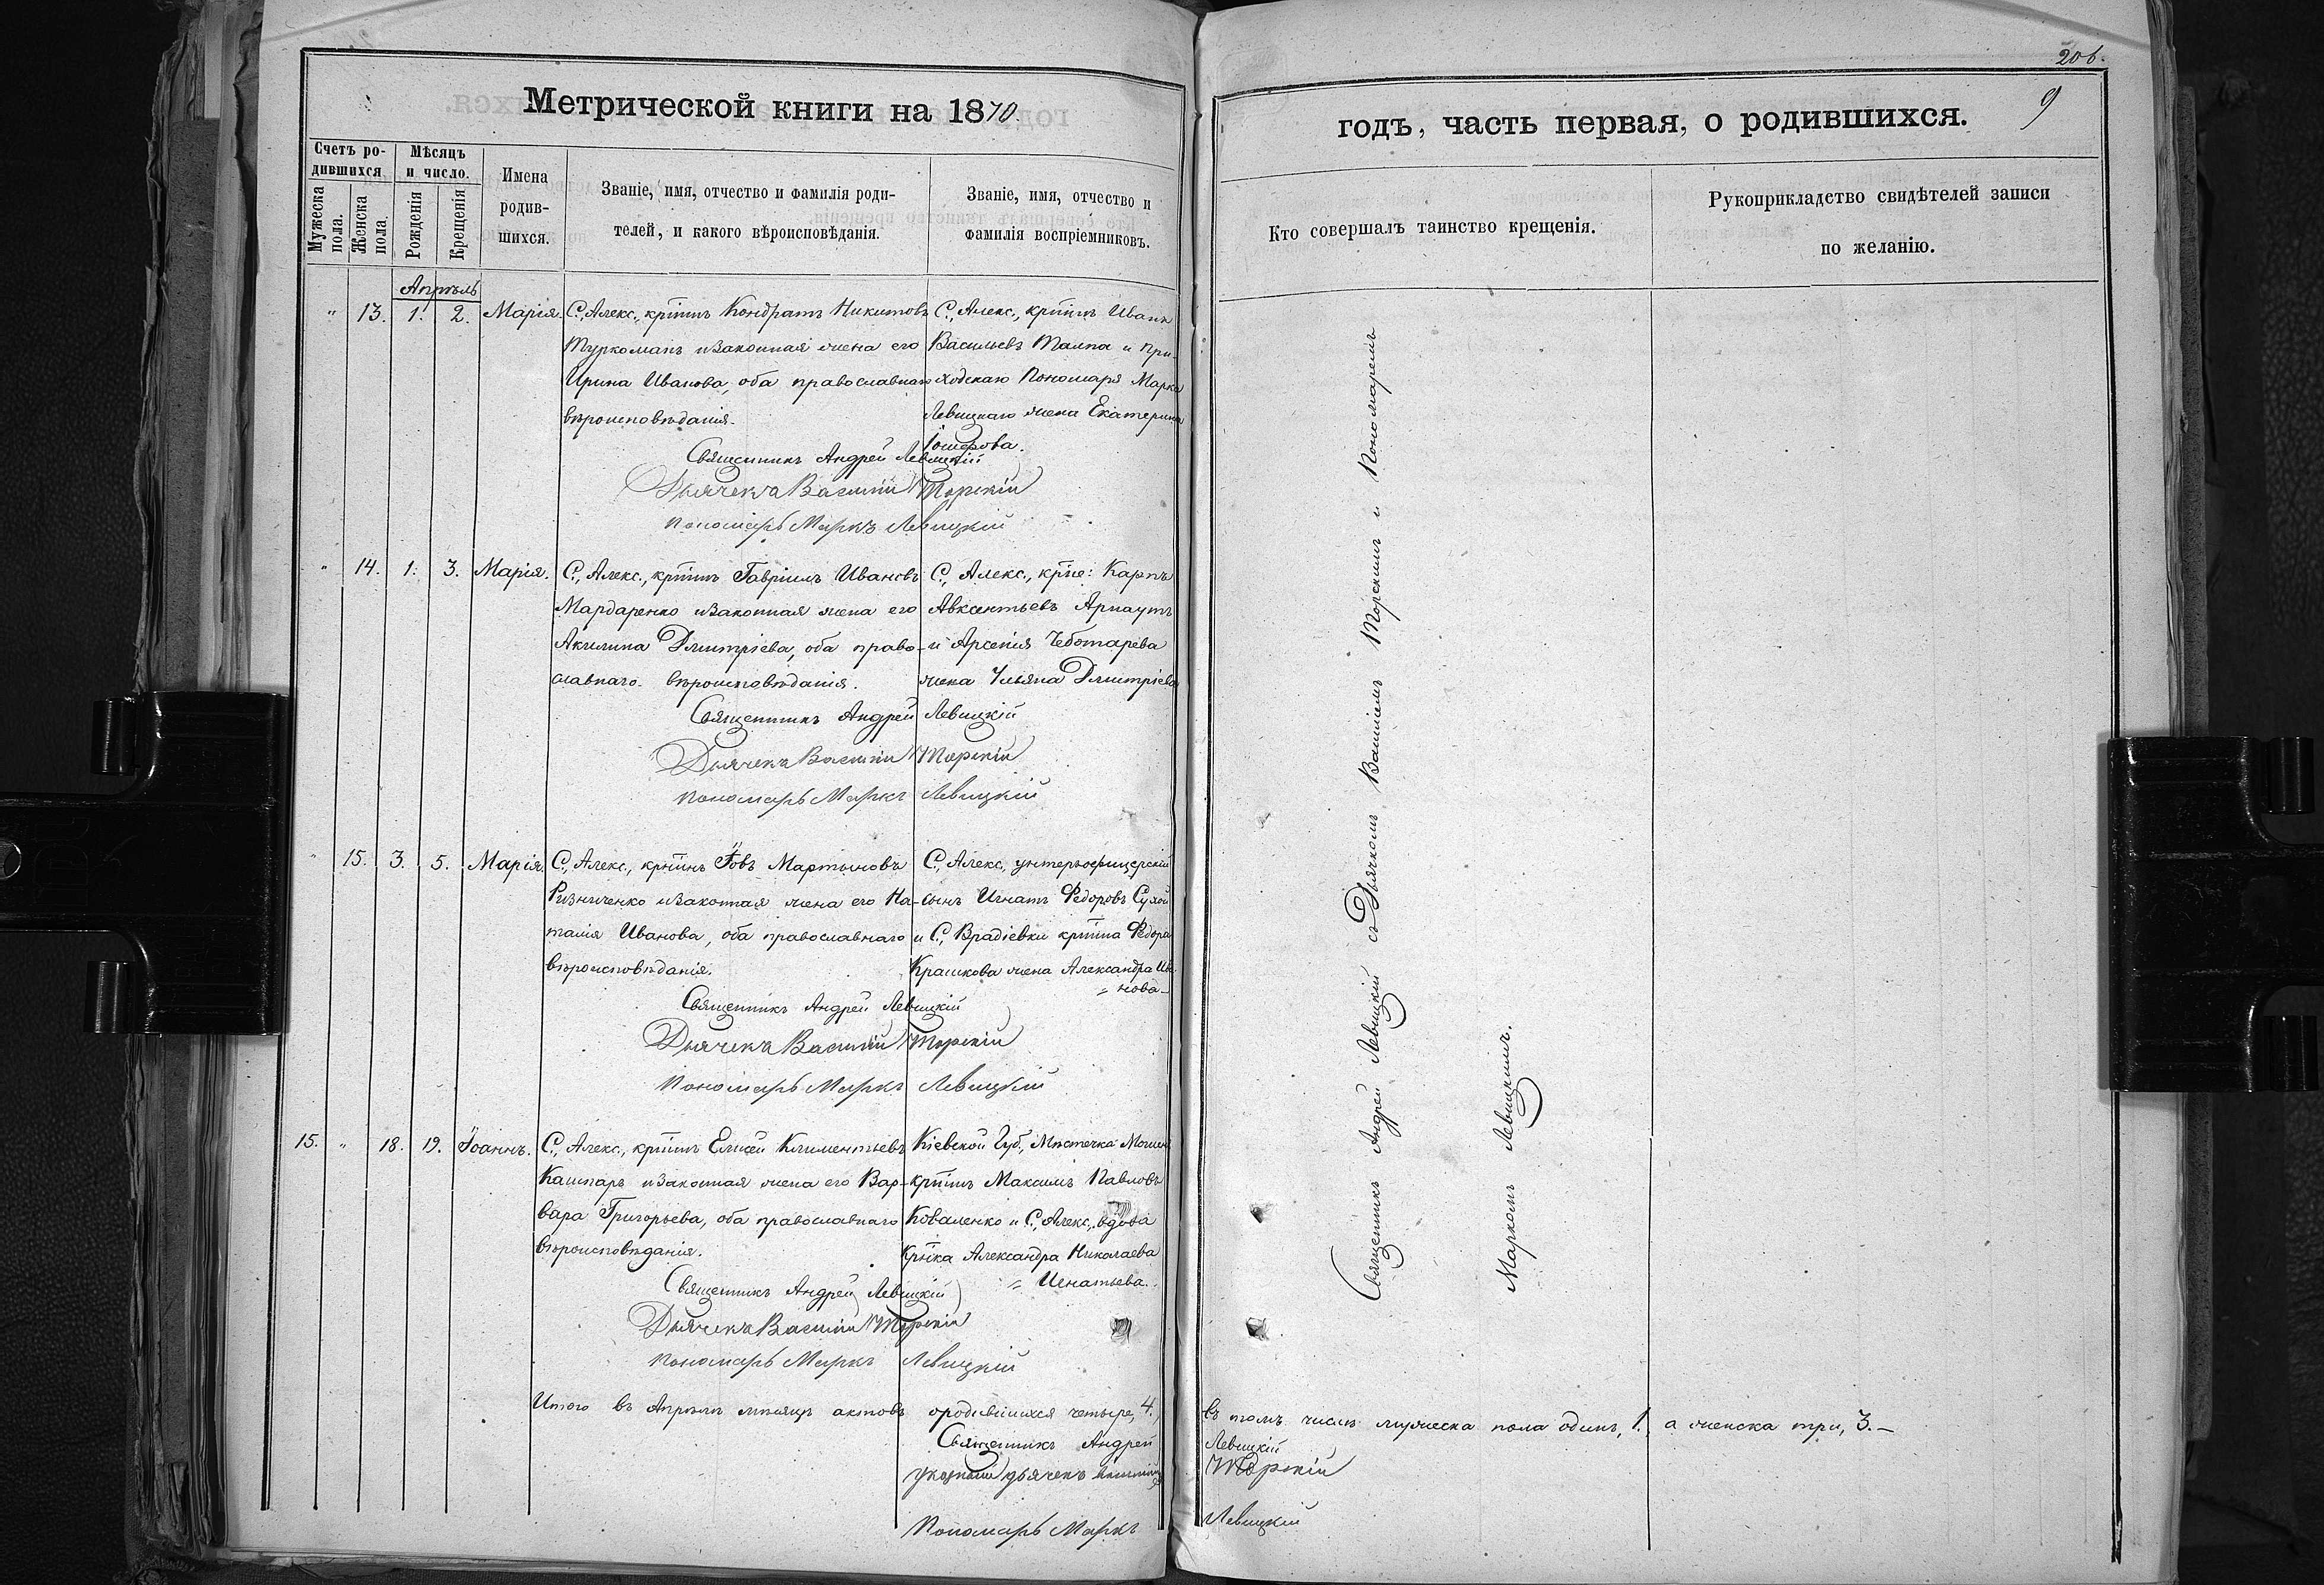 206.
9
Метрической книги на 1870
годъ, часть первая, о родившихся.
Счетъ ро-
дившихся
Мужеска
пола.
Женска
пола.
Мѣсяцъ
и число.
Рожденія
Крещенія
Имена
родив-
шихся.
Званіе, имя, отчество и фамилія роди-
телей, и какого вѣроисповѣданія.
Званіе, имя, отчество и
фамилія воспріемниковъ.
Кто совершалъ таинство крещенія.
Рукоприкладство свидѣтелей записи
по желанію.
Апрѣль
" 13. 1. 2. Марія.
С., Алекс., крт̃нъ Кондратъ Никитовъ
Туркоманъ и законная жена его
Ирина Иванова, оба православнаго
вѣроисповѣданія.
С., Алекс., крт̃нъ Иванъ
Васильевъ Талпа и при-
ходскаго Пономаря Марка
Левицкаго жена Екатерина
Іосифова.
Священникъ Андрей Левицкій
Дьячекъ Василій Торскій
Пономарь Маркъ Левицкій
" 14. 1. 3. Марія.
С., Алекс., крт̃нъ Гавріилъ Ивановъ
Мардаренко и законная жена его
Акилина Димитріева, оба право-
славнаго вѣроисповѣданія.
С., Алекс., крт̃не: Карпъ
Авксентьевъ Арнаутъ
и Арсенія Чеботарева
жена Ульяна Димитріева
Священникъ Андрей Левицкій
Дьячекъ Василій Торскій
Пономарь Маркъ Левицкій
" 15. 3. 5. Марія.
С., Алекс., крт̃нъ Іовъ Мартыновъ
Ризниченко и законная жена его На-
талія Иванова, оба православнаго
вѣроисповѣданія.
С., Алекс., унтеръ-офицерскій
сынъ Игнатъ Ѳедоровъ Сухой
и С., Врадіевки крт̃на Ѳедора
Крашкова жена Александра Ива-
= нова-
Священникъ Андрей Левицкій
Дьячекъ Василій Торскій
Пономарь Маркъ Левицкій
15. " 18. 19. Іоаннъ.
С., Алекс., крт̃нъ Елисей Климентьевъ
Кашпаръ и законная жена его Вар-
вара Григорьева, оба православнаго
вѣроисповѣданія.
Кіевской Губ., Мѣстечка
крт̃нъ Максимъ Павловъ
Коваленко и С., Алекс., вдова
крт̃ка Александра Николаева
= Игнатьева.
Священникъ Андрей Левицкій
Дьячекъ Василій Торскій
Пономарь Маркъ Левицкій
Итого въ Апрѣлѣ мѣсяцѣ актовъ о родившихся четыре, 4. въ томъ числѣ мужеска пола одинъ, 1. а женска три, 3.–
Священникъ Андрей Левицкій
указный дьячекъ Василій Торскій
Пономарь Маркъ Левицкій
Священникъ Андрей Левицкій съ Дьячкомъ Василіемъ Торскимъ и Пономаремъ
Маркомъ Левицкимъ.